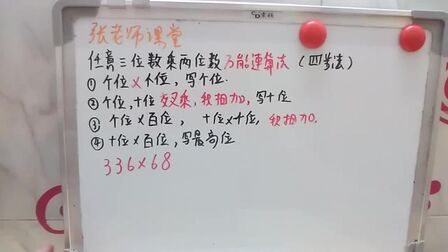 张老师课堂
任意三位数乘两位数万能速算法(四步法)
① 个位×个位,写个位.
② 个位,十位交叉乘,积相加,写十位
③ 个位×百位, 十位×十位, 积相加.
④ 十位×百位,写最高位
336×68